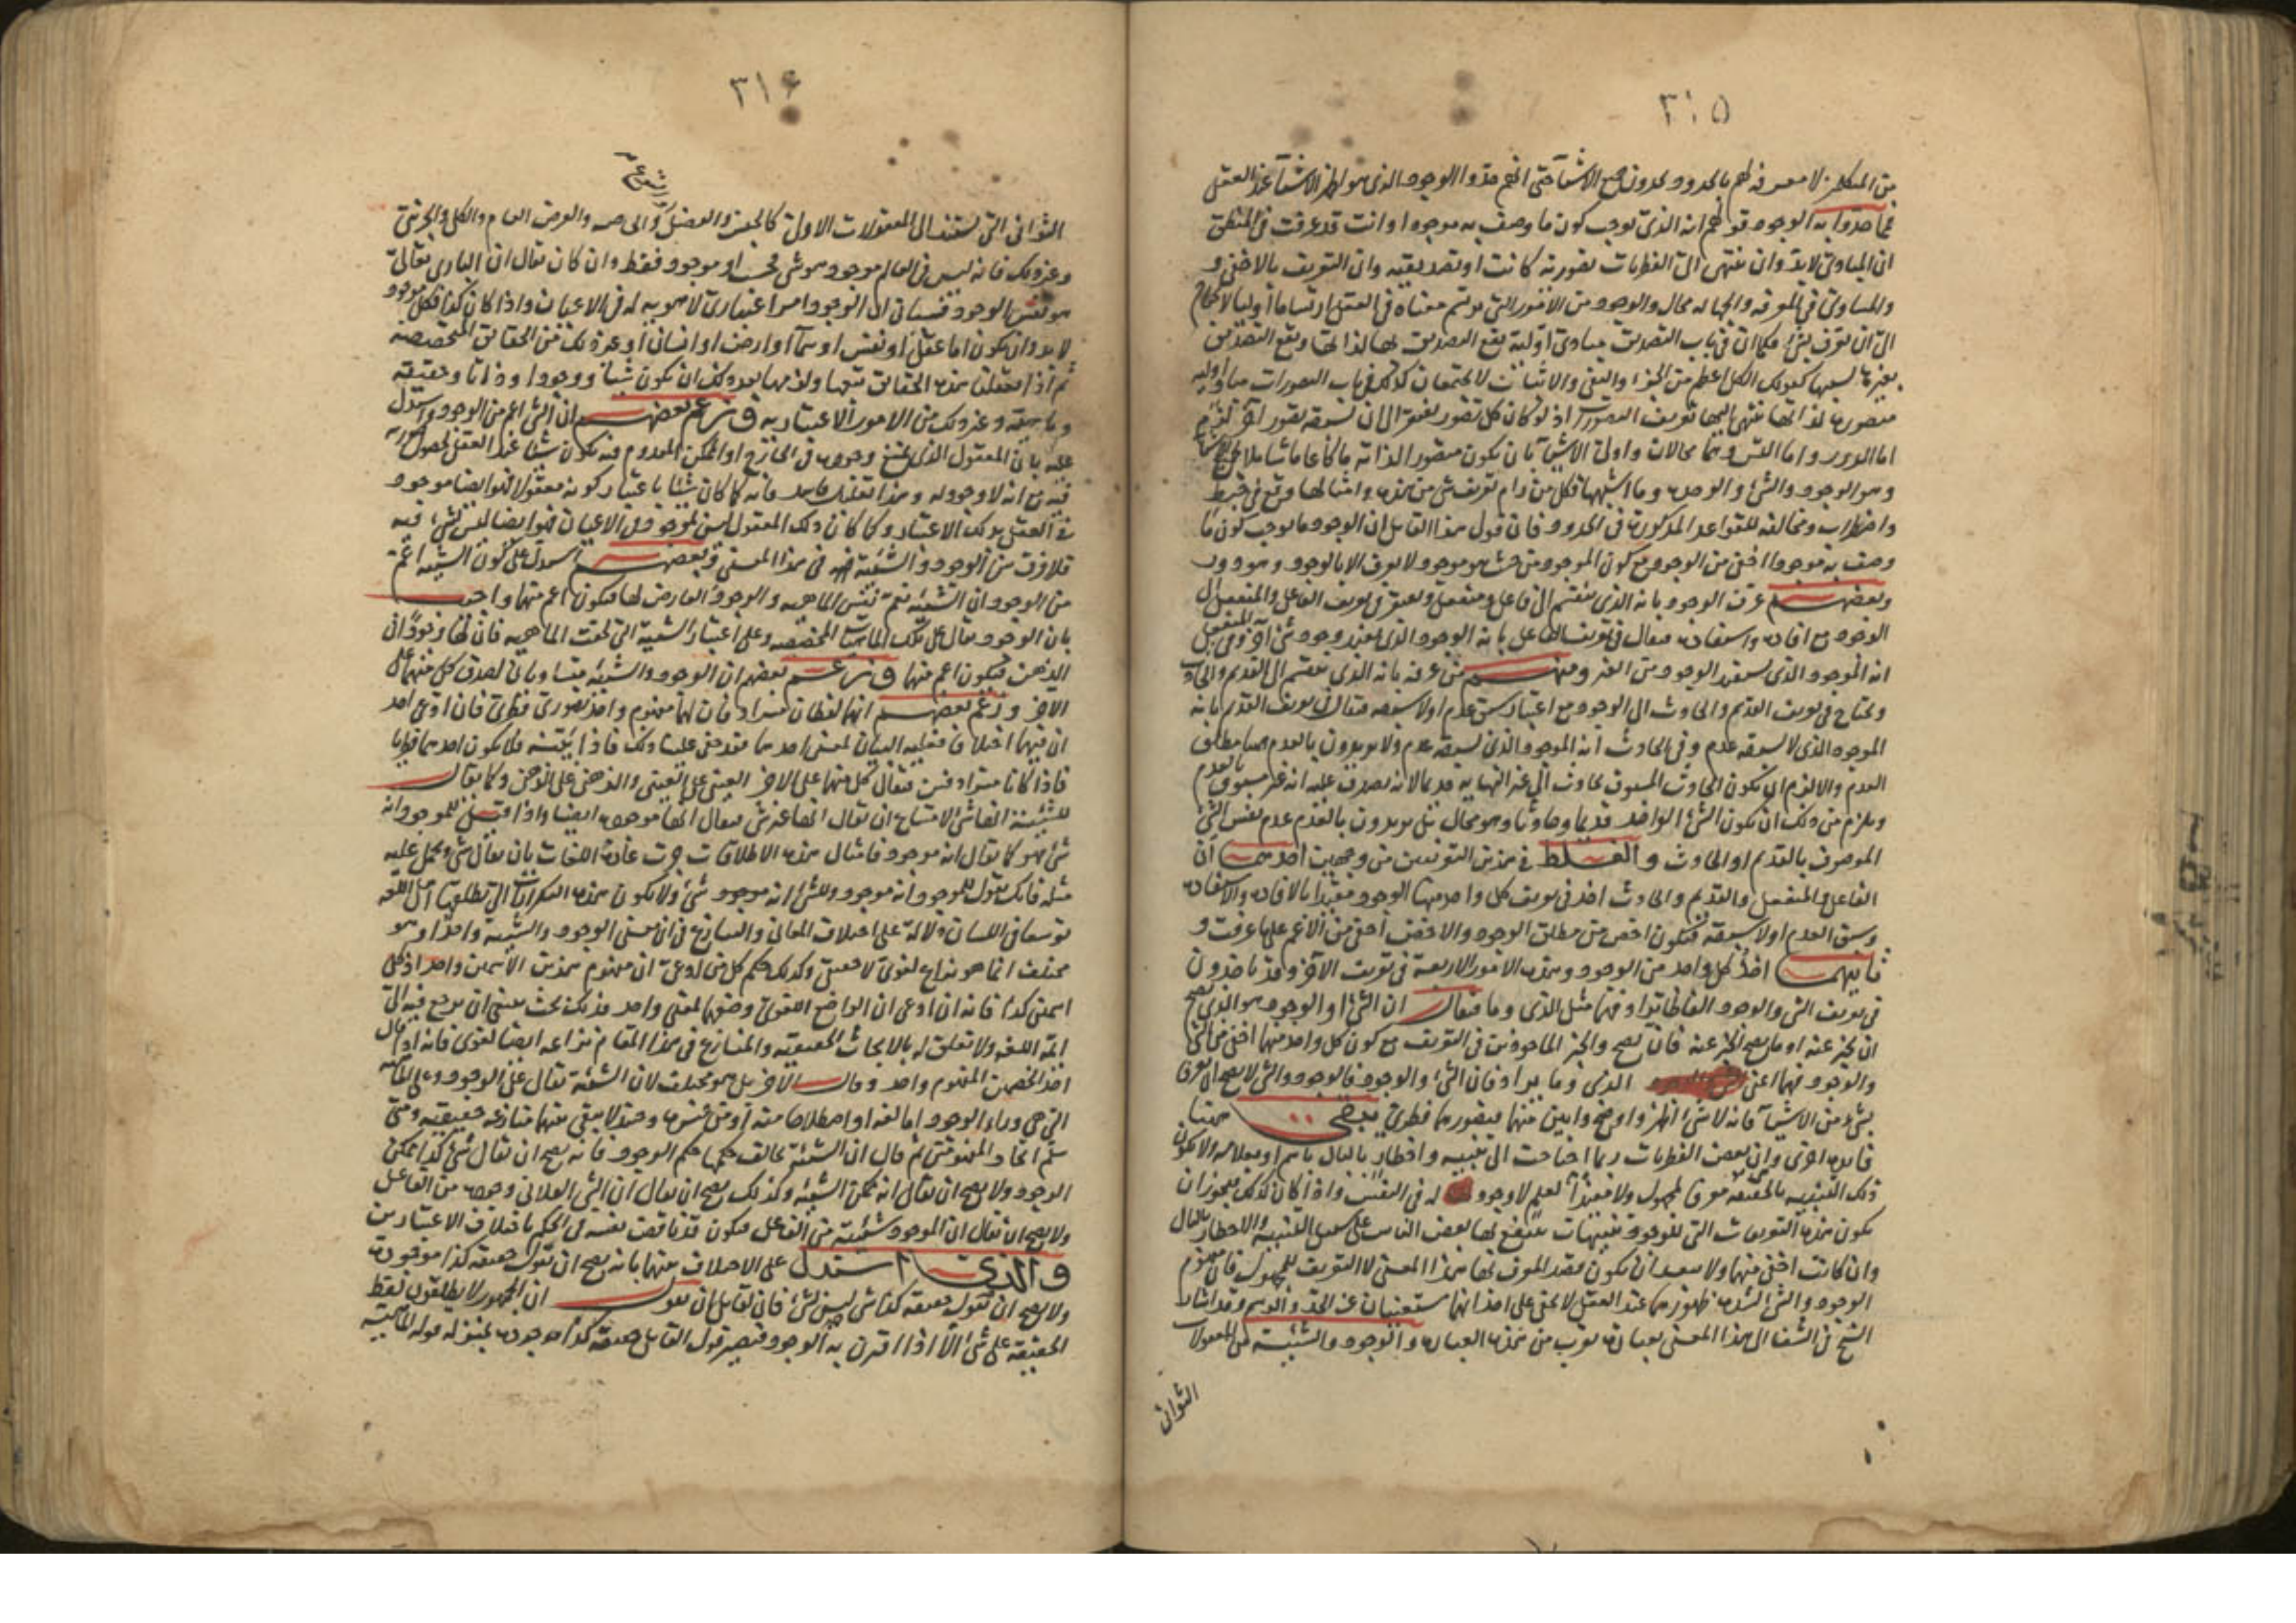 ٣١٥
من المتكلمين لا معرفة لهم بالحدود يحدون جميع الاشياء حتى انهم حدوا الوجود الذى هو اظهر الاشياء عند العقل
مما حدوا به الوجود قولهم انه الذى يوجب كون ما وصف به موجودا وانت قد عرفت فى المنطق
ان المبادى لابد وان تنتهى الى الفطريات تصورية كانت او تصديقية وان التعريف بالاخفى و
والمساوى فى المعرفة والجهالة محال والوجود من الامور التى يرتسم معناه فى العقل ارتساما اوليا لا يحتاج
الى ان يعرف بشىء فكما ان فى باب التصديق مبادى اولية يقع التصديق بها لذاتها ويقع التصديق
بغيرها بسببها كقولك الكل اعظم من الجزء والنفى والاثبات لا يجتمعان كذلك فى باب التصورات مبادى اولية
متصورة لذاتها ينتهى اليها تعريف التصورات اذ لو كان كل تصور يفتقر الى ان يسبقه تصور آخر لزم
اما الدور واما التس وهما محالان واولى الاشياء بان يكون متصورا لذاته ما كان عاما شاملا لجميع الاشياء
وهو الوجود والشىء والوحدة وما اشبهها فكل من رام تعريف شىء من هذه وامثالها وقع فى خبط
واضطراب ومخالفة للقواعد المذكورة فى الحدود فان قول هذا القايل ان الوجود ما يوجب كون ما
وصف به موجودا اخفى من الوجود مع كون الموجود من حيث هو موجود لا يعرف الا بالوجود وهو دور
وبعضهم عرف الوجود بانه الذى ينقسم الى فاعل ومنفعل ويفتقر فى تعريف الفاعل والمنفعل الى
الوجود مع افادة واستفادة فيقال فى تعريف الفاعل بانه الوجود الذى يفيد وجود شىء آخر وفى المنفعل
انه الموجود الذى يستفيد الوجود من الغير ومنهم من عرفه بانه الذى ينقسم الى القديم والحادث
ويحتاج فى تعريف القديم والحادث الى الوجود مع اعتبار سبق عدم او لا سبقه فيقال فى تعريف القديم بانه
الموجود الذى لا يسبقه عدم وفى الحادث انه الموجود الذى يسبقه عدم ولا يريدون بالعدم هيهنا مطلق
العدم والا لزم ان يكون الحادث المسبوق بحادث الى غير النهاية قديما لانه يصدق عليه انه غير مسبوق بالعدم
ويلزم من ذلك ان يكون الشىء الواحد قديما وحادثا وهو محال بل يريدون بالعدم عدم نفس الشىء
الموصوف بالقديم او الحادث والغلط فى هذين التعريفين من وجهين احدهما ان
الفاعل والمنفعل والقديم والحادث اخذ فى تعريف كل واحد منها الوجود مقيدا بالافادة والاستفادة
وسبق العدم او لا سبقه فيكون اخص من مطلق الوجود والاخص اخفى من الاعم على ما عرفت و
ثانيهما اخذ كل واحد من الوجود وهذه الامور الاربعة فى تعريف الآخر وقد ياخذون
فى تعريف الشىء والوجود الفاظا ترادفهما مثل الذى وما فيقال ان الشىء او الوجود هو الذى يصح
ان يخبر عنه او ما يصح الخبر عنه فان يصح والخبر الماخوذين فى التعريف مع كون كل واحد منهما اخفى من الشىء
والوجود فهما اعنى الذى وما يرادفان الشىء والوجود فالوجود والشىء لا يصح ان يعرفا
بشىء من الاشياء فانه لا شىء اظهر واوضح وابين منهما فتصورهما فطرى يصح هيهنا
فايدة اخرى وان بعض الفطريات ربما احتاجت الى تنبيه واخطار بالبال باسم او بعلامة ولا يكون
ذلك التنبيه بالحقيقة معرفا لمجهول ولا مفيدا لعلم لا وجود له فى النفس واذا كان كذلك فيجوز ان
يكون هذه التعريفات التى للوجود تنبيهات ينتفع بها بعض الناس على سبيل التنبيه والاخطار بالبال
وان كانت اخفى منها ولا يبعد ان يكون مقصد المعرف لها هذا المعنى لا التعريف للمجهول فان مفهوم
الوجود والشىء لشدة ظهورهما عند العقل لا يخفى على احد انهما يستغنيان عن الحد والرسم وقد اشار
الشيخ فى الشفا الى هذا المعنى بعبارة تقرب من هذه العبارة والوجود والشيئية من المعقولات
الثوانى
٣١٦
الثوانى التى تستند الى المعقولات الاولى كالجنس والفصل والخاصه والعرض العام والكلى والجزئى
وغير ذلك فانه ليس فى العالم موجود هو شىء فحسب او موجود فقط وان كان يقال ان البارى تعالى
هو نفس الوجود فسياتى ان الوجود امر اعتبارى لا هوية له فى الاعيان واذا كان كذا فكل موجود
لابد وان يكون اما عقل او نفس او سماء او ارض او انسان او غير ذلك من الحقائق المتخصصه
ثم اذا تعقلنا هذه الحقائق يتبعها ولزمها بعد ذلك ان يكون شيئا ووجودا وذاتا وحقيقة
وماهية وغير ذلك من الامور الاعتبارية وزعم بعضهم ان الشىء اعم من الوجود واستدل
عليه بان المعقول الذى يمتنع وجوده فى الخارج او الممكن المعدوم فيه يكون شيئا عند العقل لحصول صورته
فيه مع انه لا وجود له وهذا تعليل فاسد فانه كما كان شيئا باعتبار كونه معقولا فهو ايضا موجود
فى العقل بذلك الاعتبار وكما كان ذلك المعقول ليس بموجود فى الاعيان فهو ايضا ليس بشىء فيه
فلا فرق بين الوجود والشيئية فى هذا المعنى وبعضهم استدل على كون الشيئية اعم
من الوجود ان الشيئية تعم نفس الماهيه والوجود العارض لها فيكون اعم منهما واجيب
بان الوجود يقال على تلك الماهيات المخصصه وعلى اعتبار الشيئية التى لحقت الماهيه فان لها وجودا فى
الذهن فيكون اعم منها وزعم بعضهم ان الوجود والشيئية متساويان لصدق كل منهما على
الآخر وزعم بعضهم انهما لفظان مترادفان لهما مفهوم واحد تصورى فطرى فان ادعى احد
ان فيهما اختلافا فعليه البيان لمعنى احدهما فقد خفى علينا ذلك فاذا بينه فلا يكون احدهما فطريا
فاذا كانا مترادفين فيقال كل منهما على الآخر العينى على العينى والذهنى على الذهنى وكما يقال
للشيئية انها شىء لامتناع ان يقال انها غير شىء فيقال انها موجودة ايضا واذا قيل للموجود انه
شىء فهو كما يقال انه موجود فامثال هذه الاطلاقات جرت عادة اللغات بان يقال شىء ويحمل عليه
مثله فانك تقول للموجود انه موجود وللشىء انه موجود شىء ولا يكون هذه التكرارات التى تطلقها اهل اللغة
توسعا فى اللسان دلالة على اختلاف المعانى والمنازع فى ان معنى الوجود والشيئية واحد او هو
مختلف انما هو نزاع لغوى لا معنى وكذلك حكم كل من ادعى ان مفهوم هذين الاسمين واحد او كل
اسمين كذا فانه ان ادعى ان الواضع اللغوى وضعهما لمعنى واحد فذلك بحث ينبغى ان يرجع فيه الى
ايمة اللغه ولا تعلق له بالابحاث الحقيقيه والمنازع فى هذا المقام نزاعه ايضا لغوى فانه اذا قال
احد الخصمين المفهوم واحد وقال الآخر بل هو مختلف لان الشيئية تقال على الوجود وعلى الماهية
التى هى وراء الوجود اما لغة او اصطلاحا منه او من غيره وحينئذ لا يبقى بينهما منازعه حقيقيه ومتى
سلم اتحاد المفهومين ثم قال ان الشيئية يخالف حكمها حكم الوجود فانه يصح ان يقال شىء كذا ممكن
الوجود ولا يصح ان يقال انه ممكن الشيئيه وكذلك يصح ان يقال ان الشى الفلانى وجوده من الفاعل
ولا يصح ان يقال ان الموجود شيئيته من الفاعل فيكون قد ناقض نفسه فى الحكم باختلاف الاعتبارين
والذى استدل على الاختلاف بينهما بانه يصح ان يقول حقيقة كذا موجودة
ولا يصح ان يقول حقيقة كذا شىء ليس بشىء فان لقايل ان يقول ان الجمهور لا يطلقون لفظ
الحقيقة على شىء الا اذا اقترن به الوجود فيصير قول القايل حقيقة كذا موجودة بمنزلة قوله الماهية